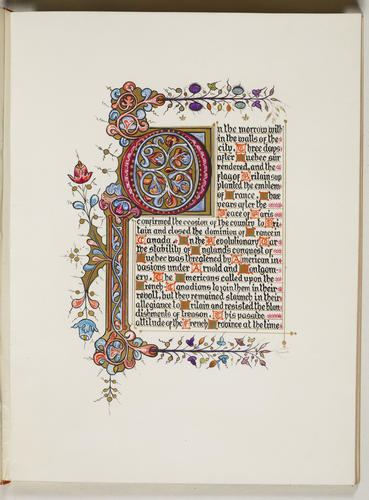 On the morrow with
in the walls of the
city. Three days
after Quebec sur
rendered, and the
flag of Britain sup
planted the emblem
of France. Three
years after the
Peace of Paris
confirmed the cession of the country to Bri
tain and closed the dominion of France in
Canada. In the Revolutionary War
the stability of England's conquest of
Quebec was threatened by American in
vasions under Arnold and Montgom
ery. The Americans called upon the
French Canadians to join them in their
revolt, but they remained staunch in their
allegiance to Britain and resisted the blan
dishments of treason. This passive
attitude of the French Province at the time